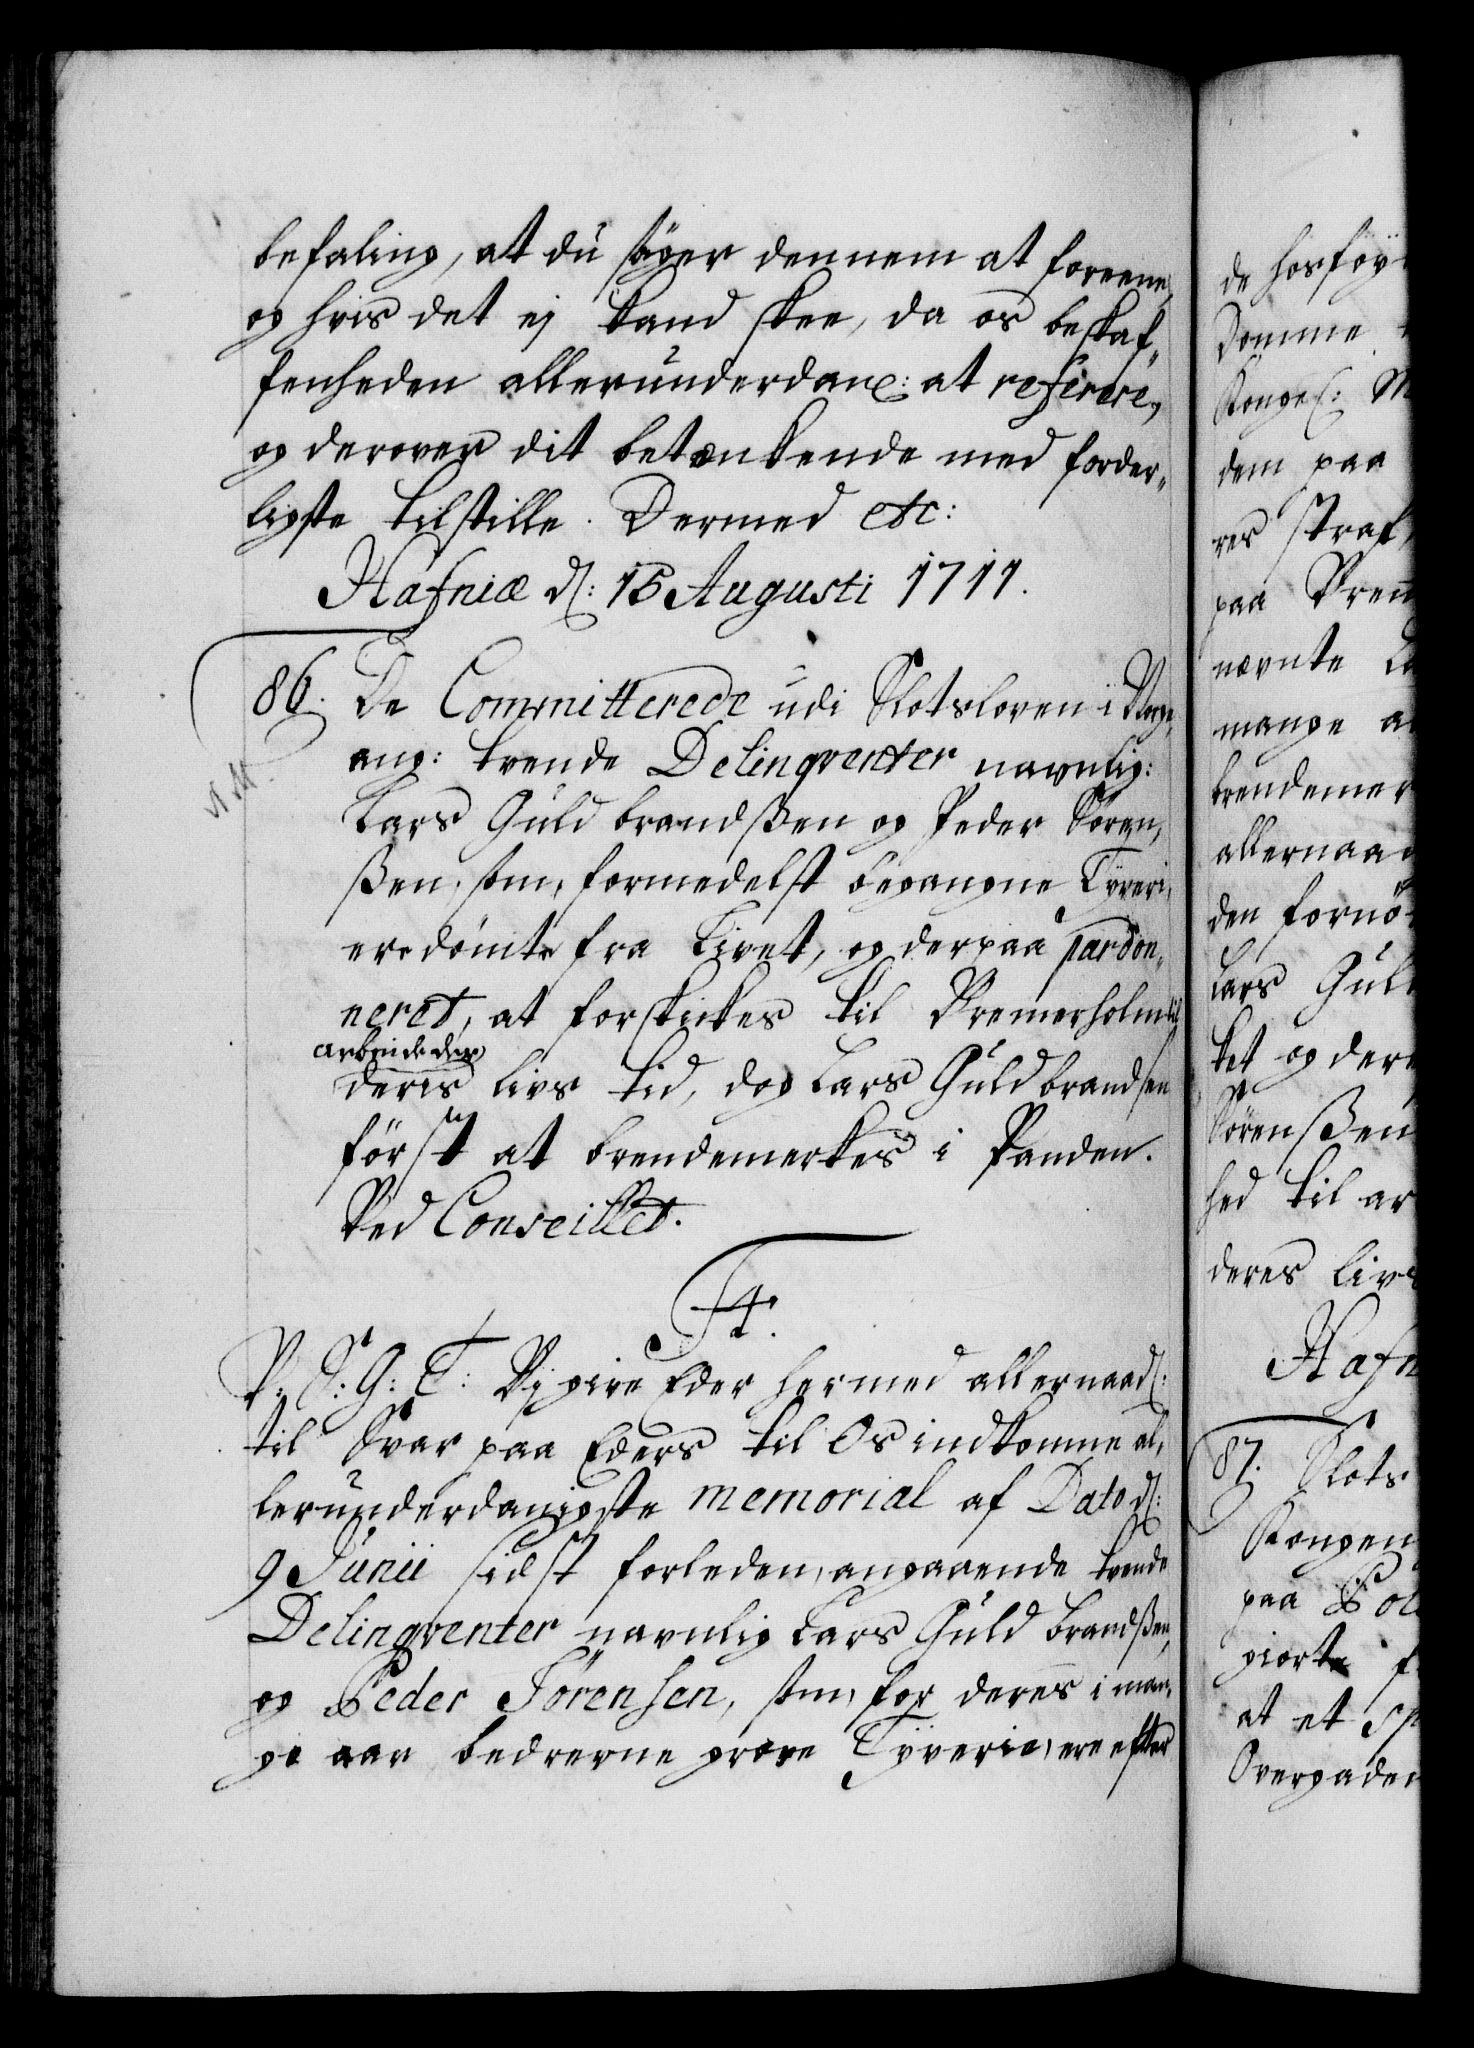 befaling, at du søger dennem at foreene,
og hvis det ej kand skee, da os beskaf„
fenheden allerunderdan: at referere,
og derover dit betænkende med forder„
ligste tilstille. Dermed etc:
Hafniæ d: 15 Augusti 1711.
86. De Committerede udi Slotsloven i Norge,
ang: tvende Delinqventer navnlig:
Lars Guldbrandßen og Peder Søren„
ßen, som, formedelst begangne Tyveri,
ere dömte fra Livet, og derpaa pardon„
neret, at forskickes til Bremerholm til
arbeide der
deris livs tid, dog Lars Guldbrandsen
först at brendemerkes i Panden.
Ved Conseillet.
F 4.
V: S: G: T: Vi give Eder hermed allernaad:
til Svar paa Eders til Os indkomne al„
lerunderdanigste memorial af Dato d:
9 Junii sidst forleden, angaaende tvende
Delinqventer navnlig Lars Guldbrandßen,
og Peder Sörensen, som, for deres i man„
ge aar bedrevne grove Tÿverie, ere efter
de hosföy
Domme
Kongel: M
dem paa
res straf,
paa Brem
nævnte La
mange a
brendemer
allernaad
den fornö
Lars Gul
tet og der
Sörenßen
hed til ar
deres livs
Hafn
87. Slots
Kongen
paa
giorte f
at et
Overgaden